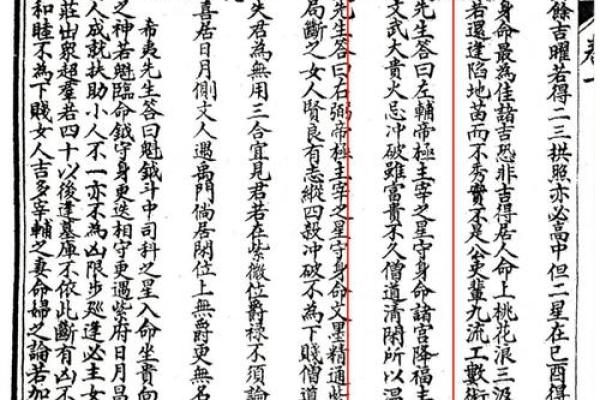 卷一
餘吉曜若得二三拱照亦必高中但二星在巳酉得
身命最為佳諸吉恐非吉得居人命上桃花浪三汲
若還逢陷地苗而不秀實不是公吏輩九流工數術
先生答曰左輔帝極主宰之星守身命諸宮降福主
文武大貴火忌冲破雖富貴不久僧道清閑所以温
先生答曰右弼帝極主宰之星守身命文墨精通紫
局斷之女人賢良有志縱四殺冲破不為下賤僧道
失君為無用三合宜見君若在紫微位爵祿不須論
喜居日月側文人遇禹門倘居閑位上無爵更無名
希夷先生答曰魁鉞斗中司科之星入命坐貴向
之神若魁臨命鉞守身更迭相守更遇紫府日月昌
人成就扶助小人不一亦不為凶限步廵逢必主女
莊出衆超羣若四十以後逢墓庫不依此斷有凶不
和睦不為下賤女人吉多宰輔之妻命婦之論若加